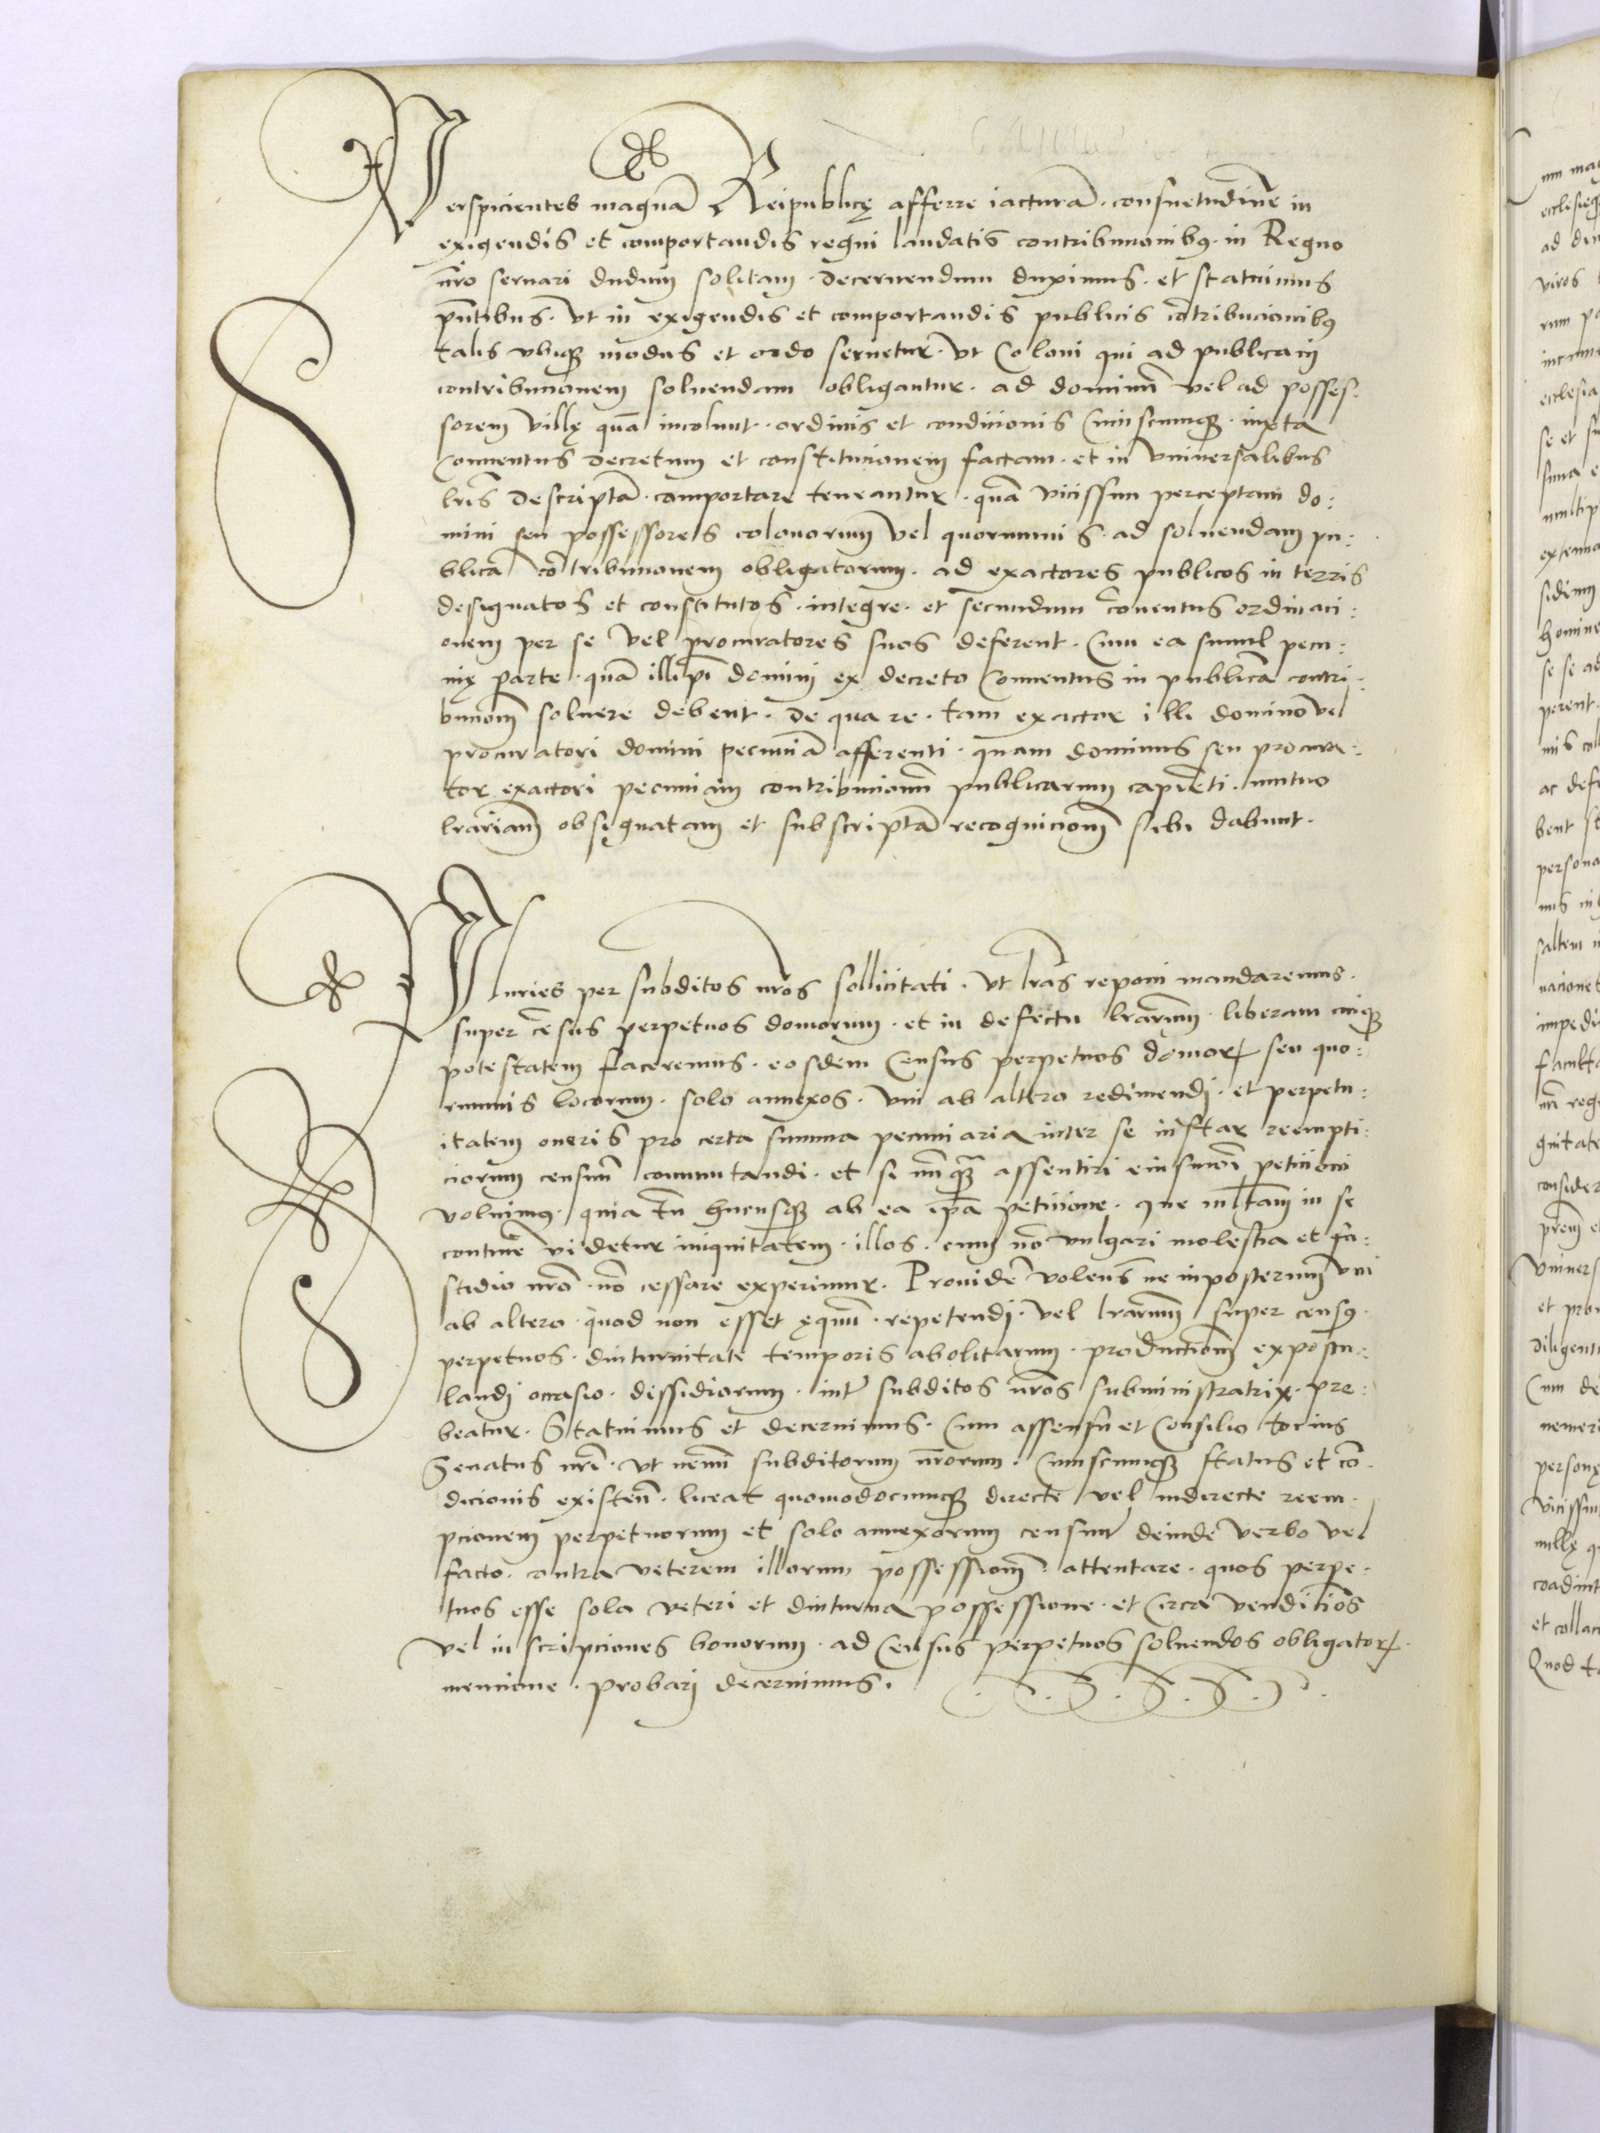 Perspicientes magnā Reipublicę afferre iacturā · consuetudinē in
exigendis et comportandis regni laudatis contribucionibꝫ · in Regno
nr̄o seruari dudum solitam · decernendum duximus · et statuimus
pn̄tibus · vt in exigendis et comportandis publicis cōtribucionibꝫ
talis vbiqꝫ modus et ordo seruetur · vt coloni qui ad publicam
contribucionem soluendam obligantur · ad dominū vel ad posses:
sorem villę quā incolunt · ordinis et condicionis cuiuscumqꝫ · iuxta
conuentus decretum et constitucionem factam · et in vniuersalibus
lr̄is descriptā · comportare teneantur · quā vicissim perceptam do:
mini seu possessores colonorum vel quorumuis · ad soluendam pu:
blicā cōtribucionem obligatorum · ad exactores publicos in terris
designatos et constitutos · integre · et secundum cōuentus ordinaci:
onem per se vel procuratores suos deferent · Cum ea simul pecu:
nię parte · quā illi ip̄i domini ex decreto conuentus in publicā contri:
bucionē soluere debent · De qua re · tam exactor illi domino vel
procuratori domini pecuniā afferenti · quam dominus seu procura:
tor exactori pecuniam contribucionū publicarum capiēti · mutuo
lr̄ariam obsignatam et subscriptā recognicionē sibi dabunt ·
Pluries per subditos nr̄os sollicitati · vt lr̄as reponi mandaremus ·
super cēsus perpetuos domorum · et in defectu lr̄arum · liberam cuiqꝫ
potestatem faceremus · eosdem census perpetuos domorꝝ seu quo:
rumuis locorum · solo annexos · vni ab altero redimendi · et perpetu:
itatem oneris pro certa summa pecuniaria inter se instar reempti:
ciorum censuū commutandi · et si nūqꝫ assentiri eiusmōi peticioni
voluimꝰ · quia tn̄ hucusqꝫ ab ea ip̄a peticione · que multam in se
continē videtur iniquitatem · illos · cum nō vulgari molestia et fa:
stidio nr̄o · nō cessare experimur · Prouidē volens ne inposterum vni
ab altero · quod non esset ęquū · repetendi · vel lr̄arum super censꝰ
perpetuos · diuturnitate temporis abolitarum · productionē expostu:
landi occasio · dissidiorum · int̄ subditos nr̄os subministratrix · pre:
beatur · Statuimus et decernimus · Cum assensu et consilio tocius
Senatus nr̄i · vt nemī subditorum nr̄orum · cuiuscumqꝫ status et cō
dicionis existen̄ · liceat quomodocumqꝫ directe vel indirecte reem
pcionem perpetuorum et solo annexorum censuū deinde verbo vel
facto · contra veterem illorum possessionē attentare · quos perpe
tuos esse sola veteri et diuturna possessione · et circa vendiciōs
vel inscripciones bonorum · ad census perpetuos soluendos obligatorꝝ
mencione · probari decernimus ·